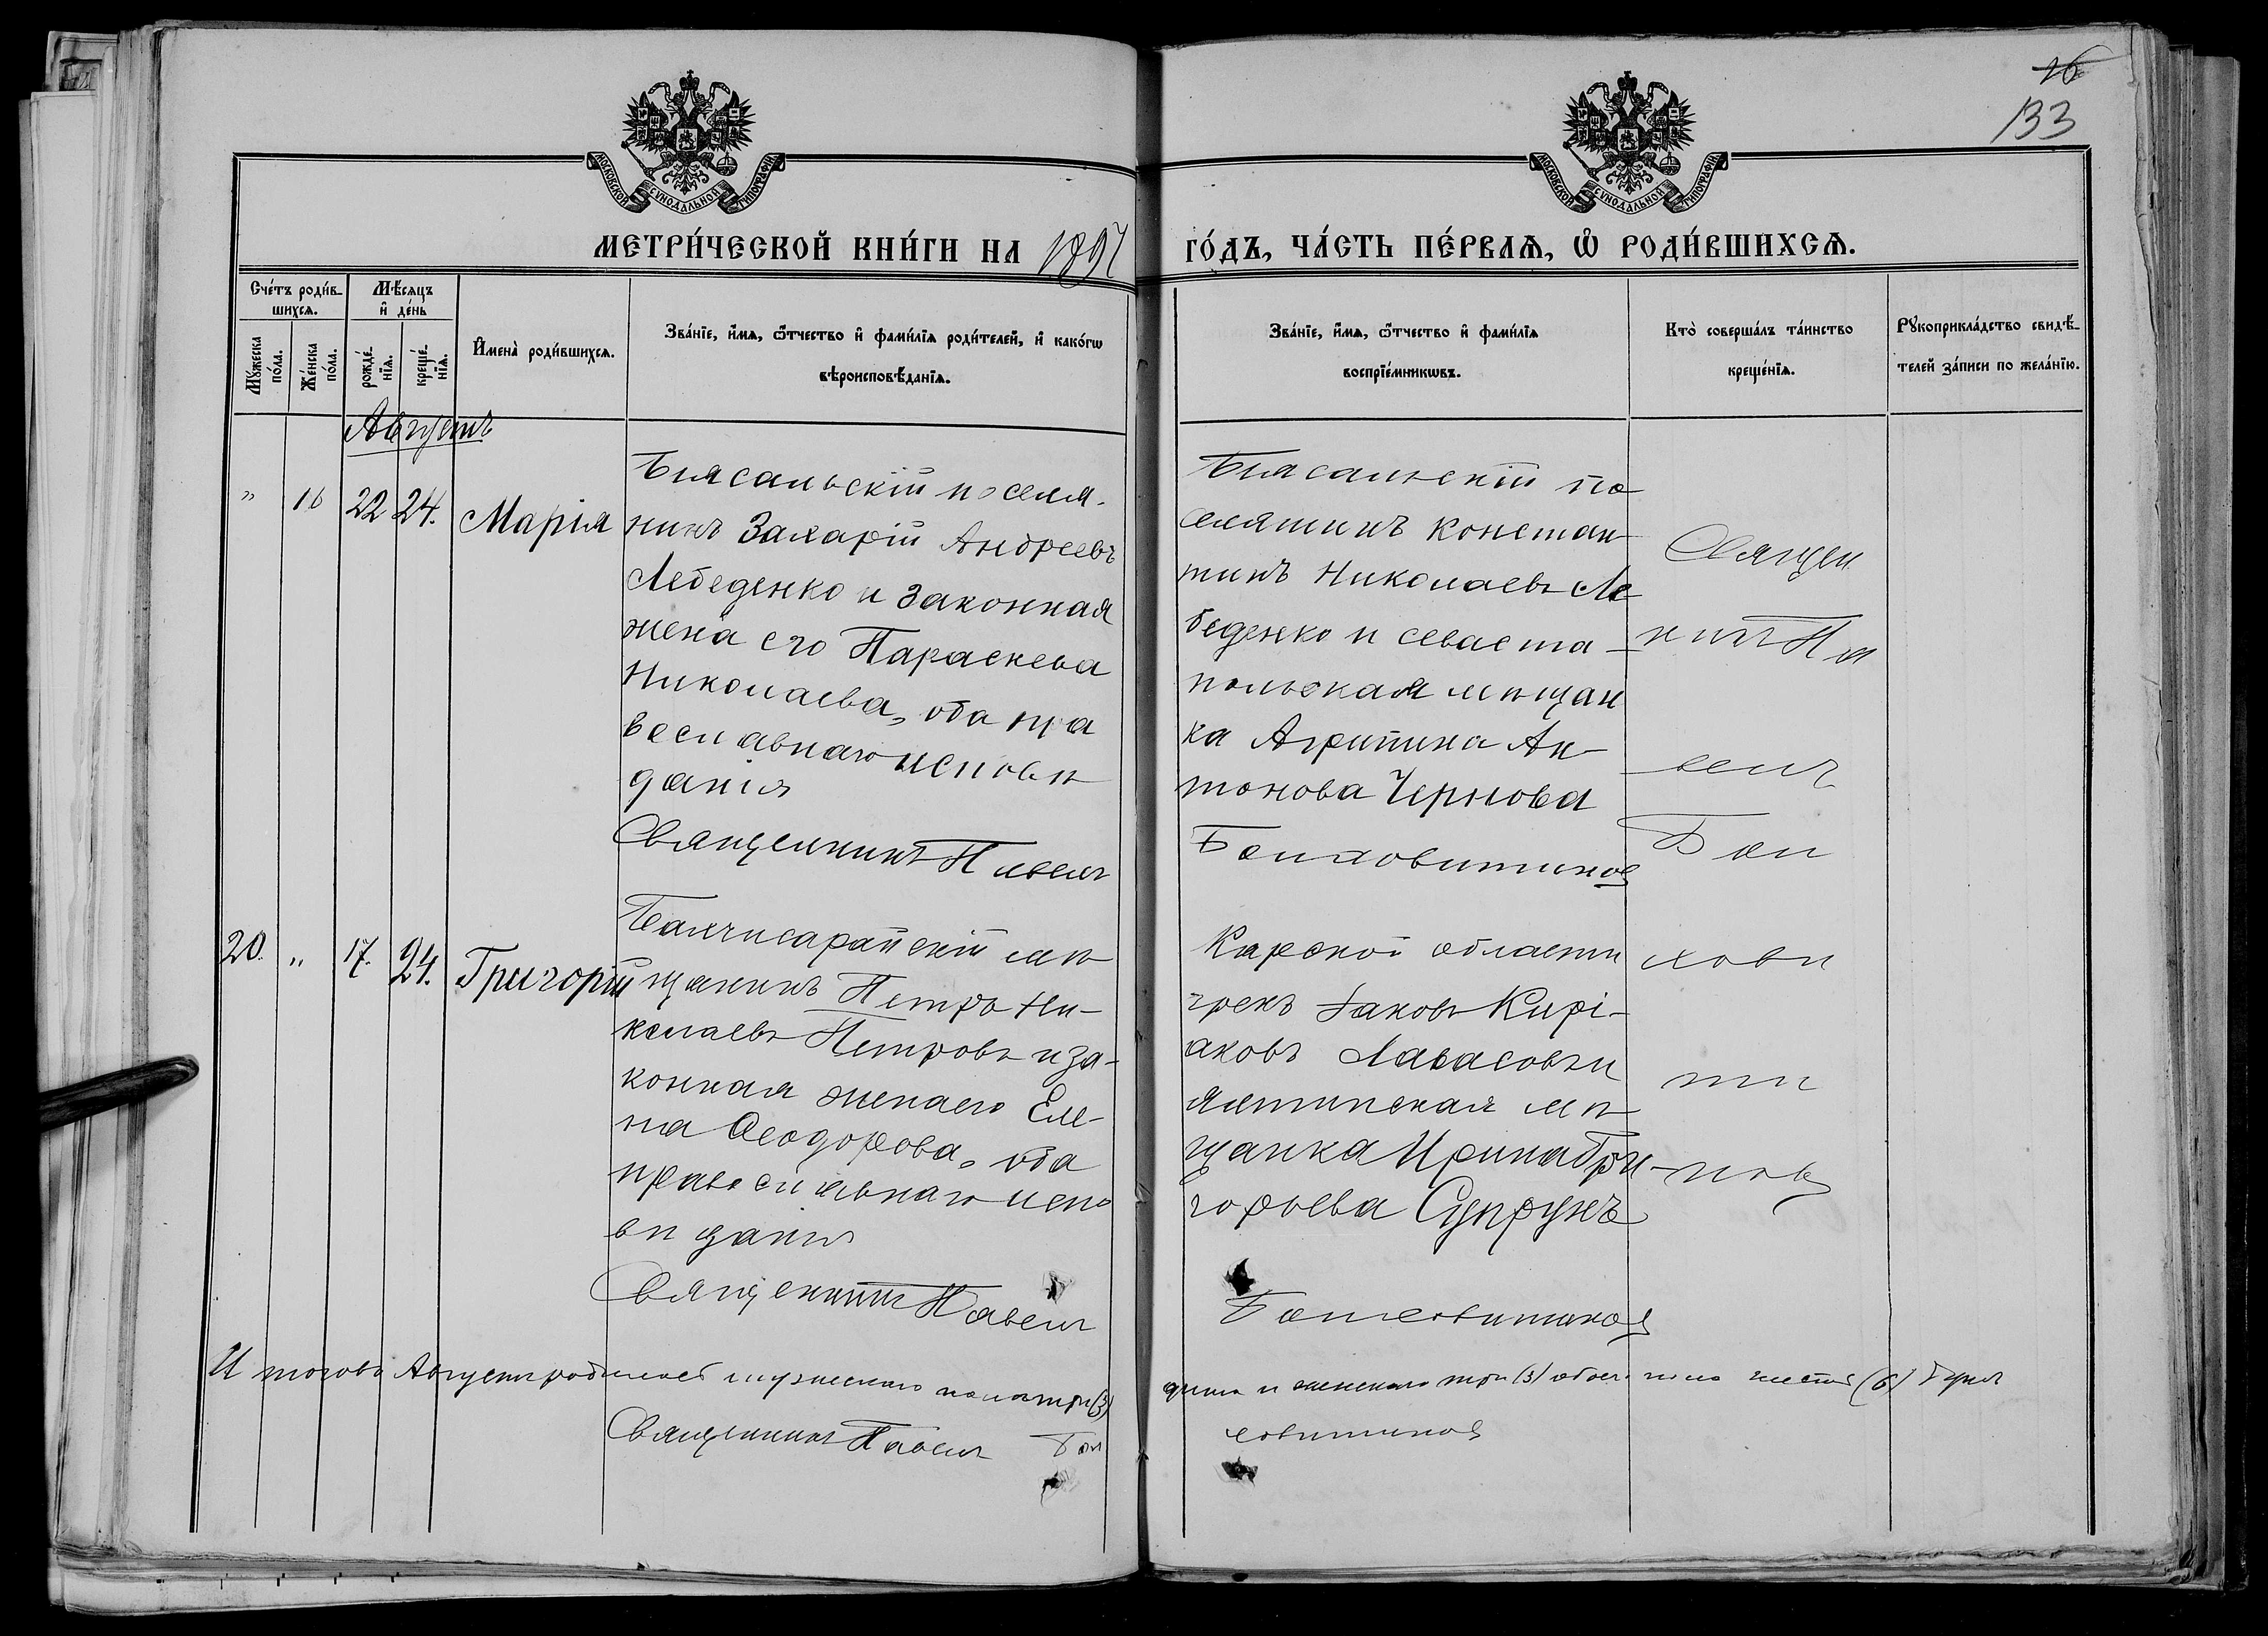 16
133
МОСКОВСКОЙ СУНОДАЛЬНОЙ ТИПОГРАФІИ
МОСКОВСКОЙ СУНОДАЛЬНОЙ ТИПОГРАФІИ
МЕТРИ́ЧЕСКОЙ КНИ́ГИ НА 1897 ГО́ДЪ, ЧА́СТЬ ПЕ́РВАѦ, Ѡ РОДИ́ВШИХСѦ.
Сче́тъ роди́в-
шихсѧ.
Мꙋжеска по́ла.
Же́нска по́ла.
Мѣ́сѧцъ
и҆ де́нь
рожде́-
нїѧ.
креще́-
нїѧ.
И҆мена̀ роди́вшихсѧ.
Зва́нїе, и҆́мѧ, ѻ҆́тчество и҆ фамѝлїѧ роди́телей, и҆ како́гѡ
вѣроисповѣ́данїѧ.
Зва́нїе, и҆́мѧ, ѻ҆́тчество и҆ фамѝлїѧ
воспрїе́мникѡвъ.
Кто̀ соверша́лъ та́инство
креще́нїѧ.
Рꙋкоприкла́дство свидѣ́-
телей за́писи по жела́нїю.
Августъ
" 16 22 24. Марія
Біясальскій поселя-
нинъ Захарій Андреевъ
Лебеденко и законная
жена его Параскева
Николаева, оба пра
вославнаго исповѣ
данія
Священникъ Павелъ
Біясальскій по
селянинъ Констан
тинъ Николаевъ Ле
беденко и севаста
польская мѣщан
ка Агрипина Ан-
тонова Чернова
Баиховитинов
Священ
никъ Па
велъ
Баи
хови
ти
нов
20. " 17. 24. Григорій
Бахчисарайскій мѣ
щанинъ Петръ Ни-
колаевъ Петровъ и за-
конная жена его Еле-
на Ѳеодорова, оба
православнаго испо
вѣданія
Священникъ Павелъ
Карской области
грекъ Іаковъ Кирі-
аковъ Лавасовъ и
ялтинская мѣ
щанка Ирина Гри-
горьева Супрунъ
Баиховитинов
Итого въ Августѣ родилось мужескаго пола три (3)
и женскаго три (3) обоего пола шесть (6) душъ
Священникъ Павелъ Баи
ховитинов